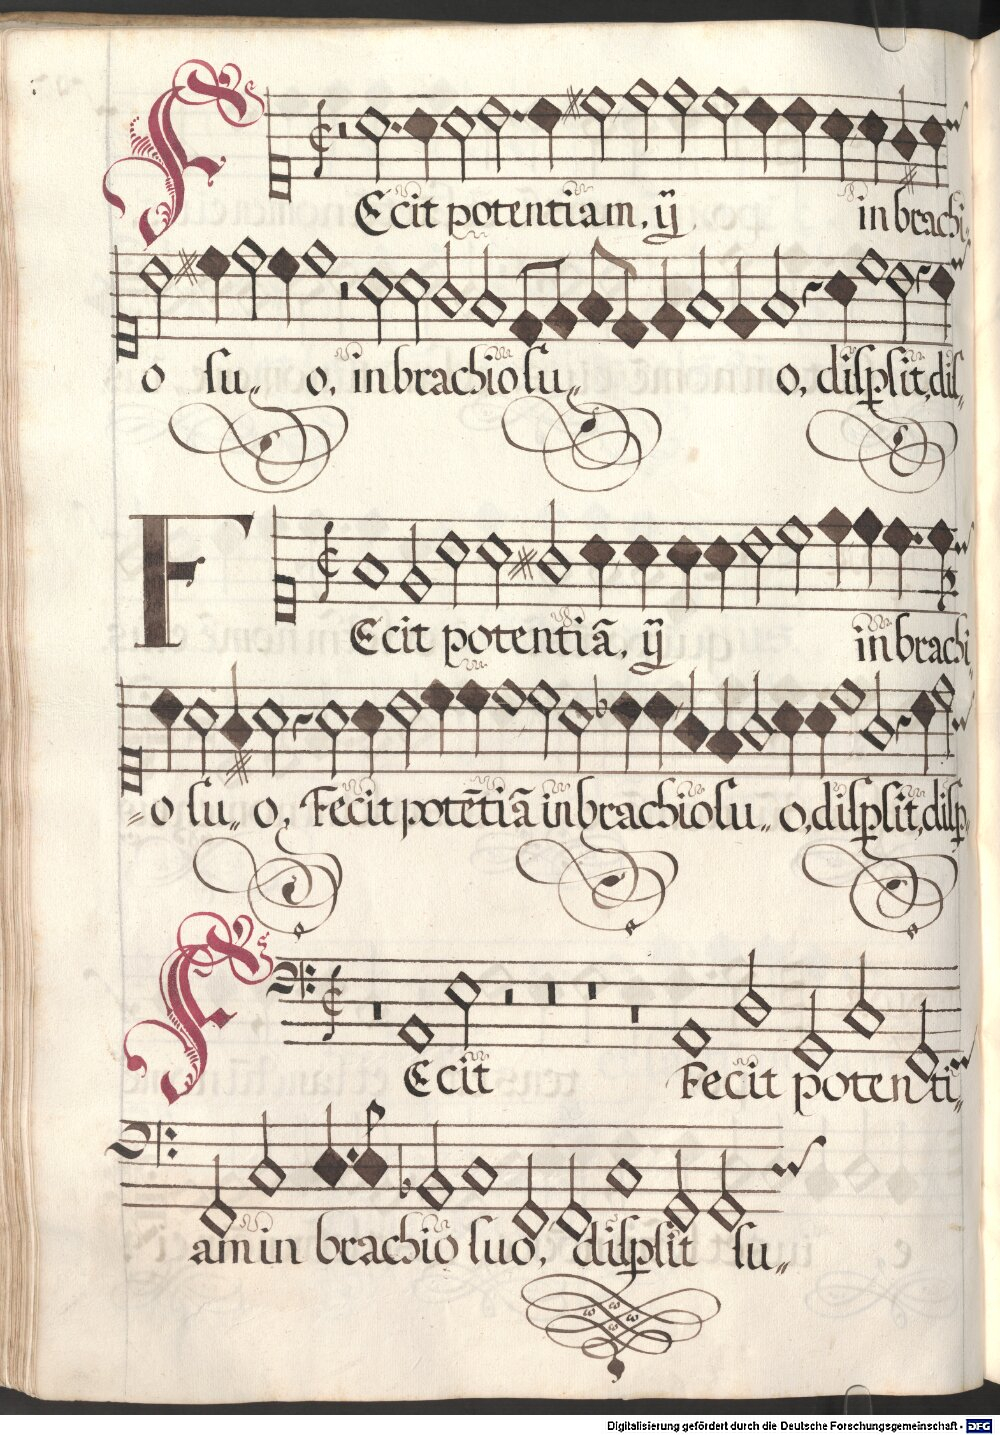 FEcit potentiam, ij in brachi
o su„ o, in brachio su„ o, dispsit, dis„
FEcit potentiã, ij in brachi
„o su„ o, Fecit potētiã in brachio su„ o, dispsit, disp„
FEcit Fecit potenti„
am in brachio suo, dispsit su„
Digitalisierung gefördert durch die Deutsche Forschungsgemeinschaft - DFG